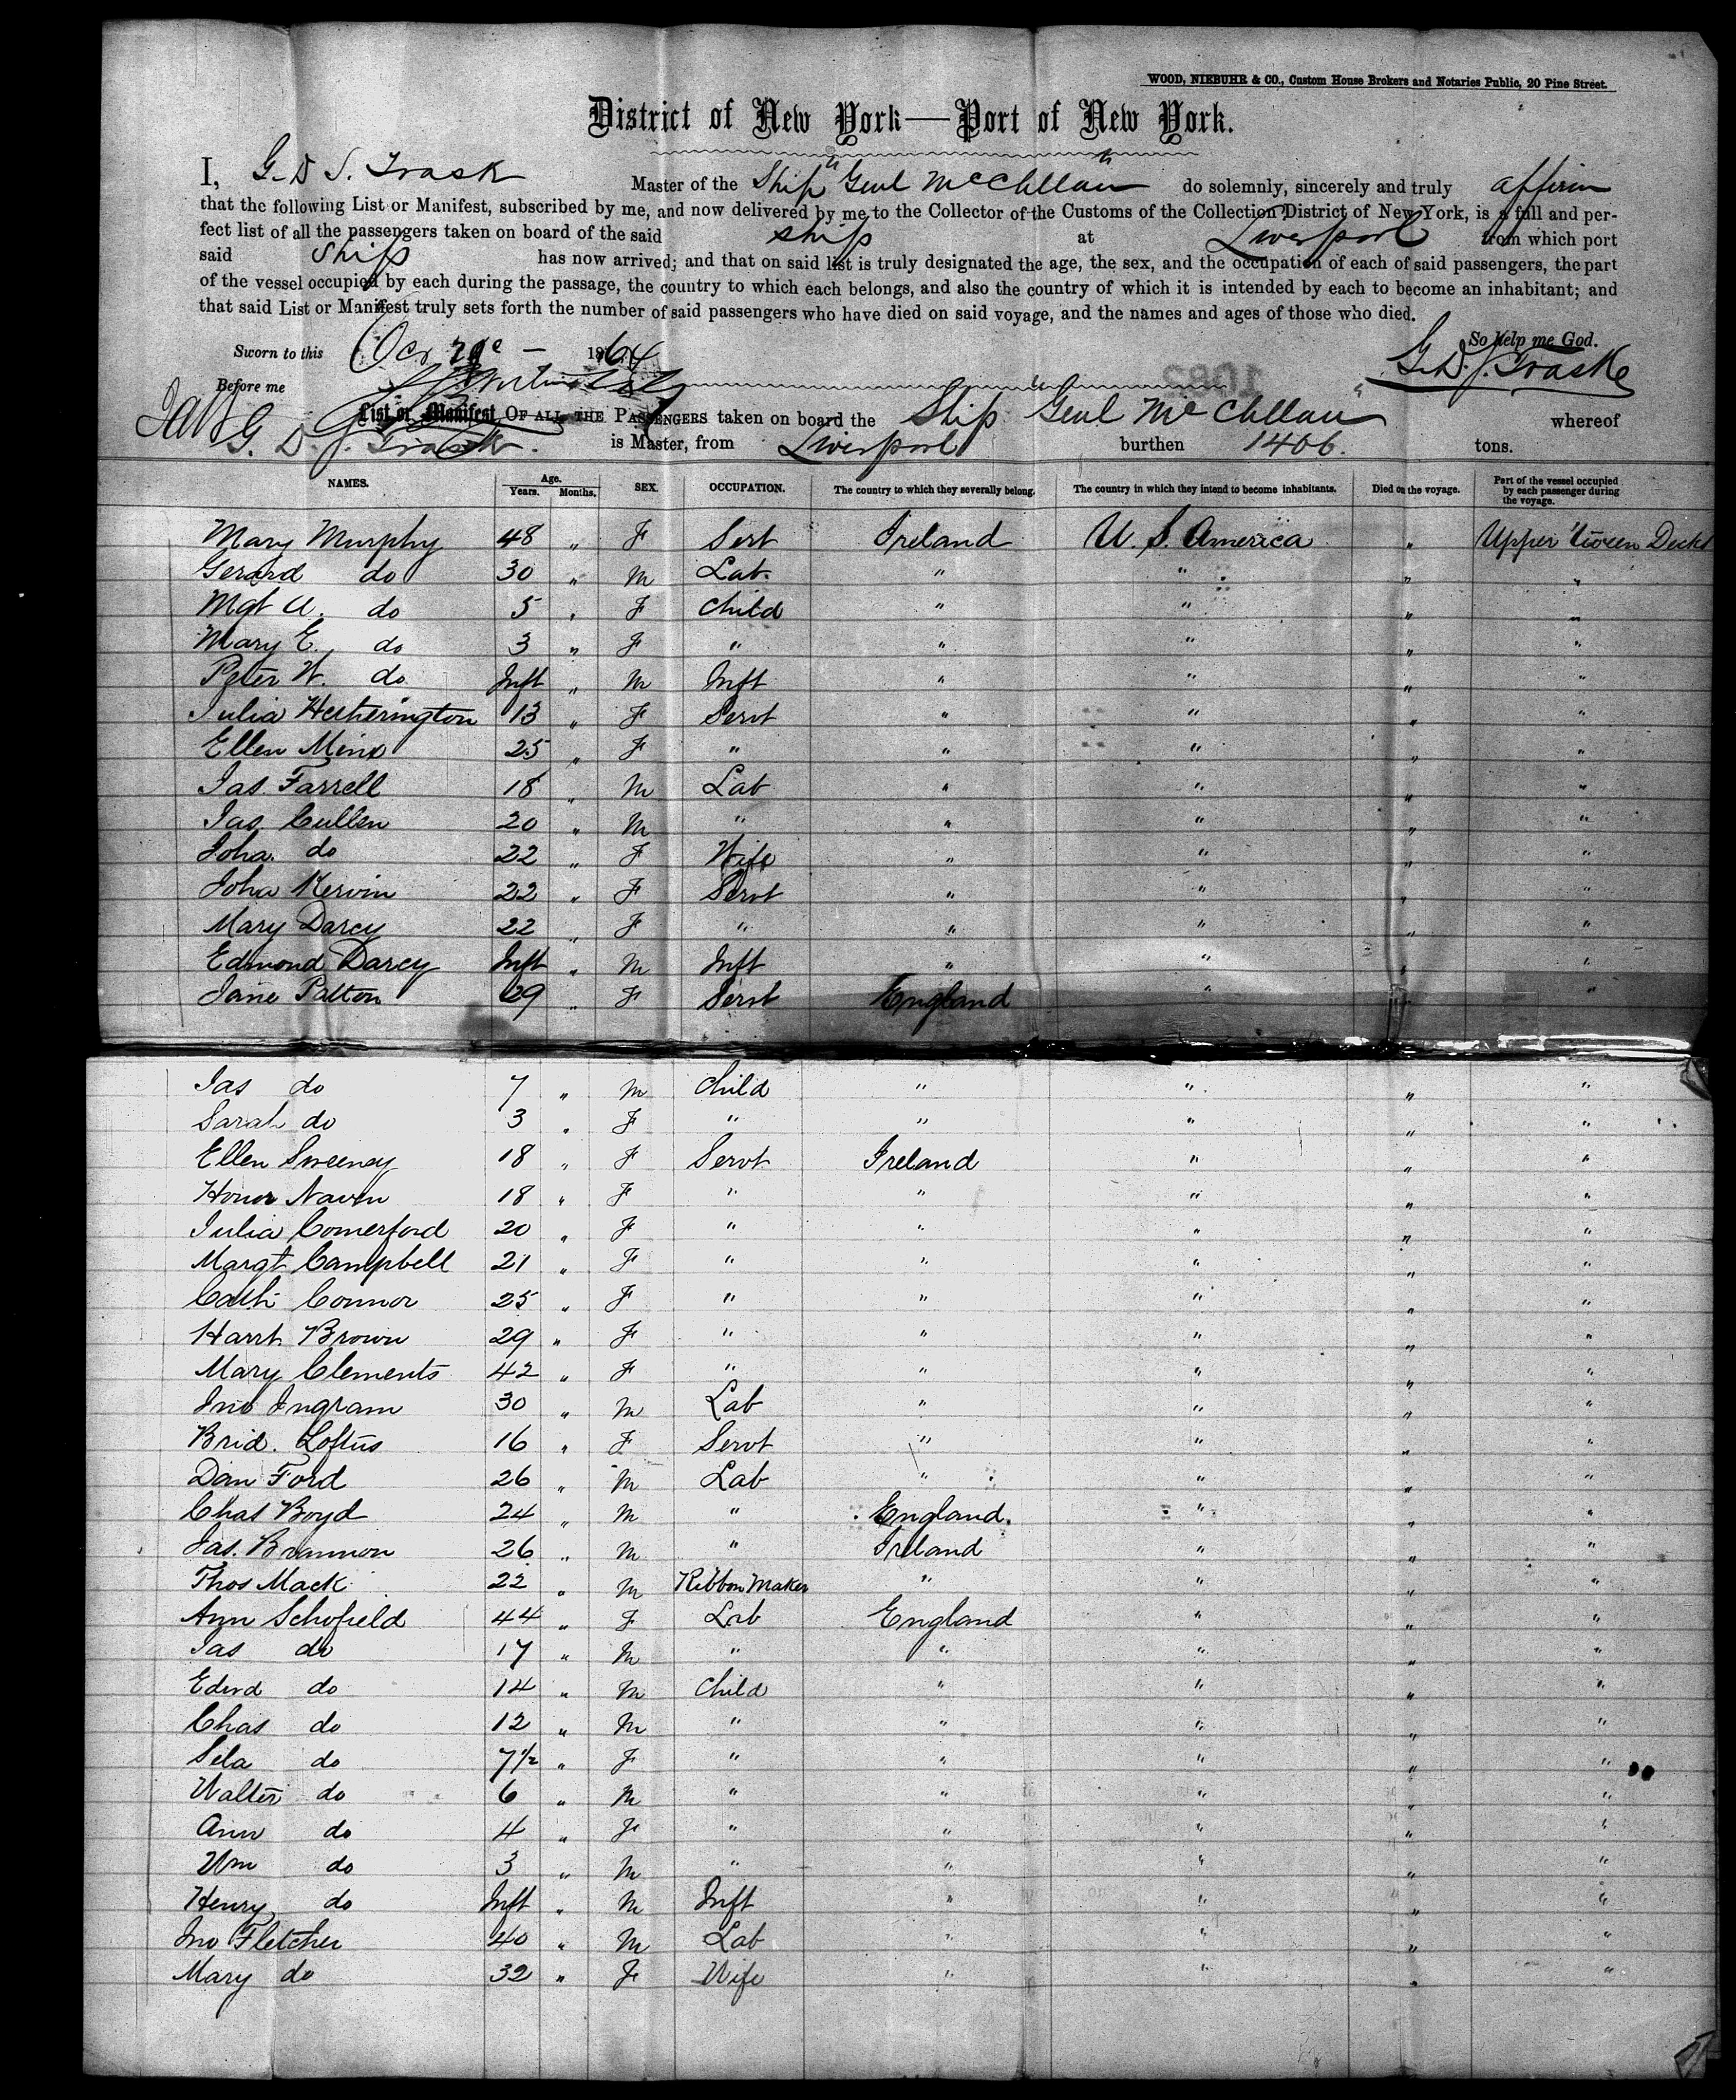 WOOD, NIEBUHR & CO., Custom House Brokers and Notaries Public, 20 Pine Street.
District of New York—Port of New York.
I, G. D. S. Trask Master of the Ship "Genl McClellan" do solemnly, sincerely and truly affirm
that the following List or Manifest, subscribed by me, and now delivered by me to the Collector of the Customs of the Collection District of New York, is a full and per-
fect list of all the passengers taken on board of the said ship at Liverpool from which port
said Ship has now arrived; and that on said list is truly designated the age, the sex, and the occupation of each of said passengers, the part
of the vessel occupied by each during the passage, the country to which each belongs, and also the country of which it is intended by each to become an inhabitant; and
that said List or Manifest truly sets forth the number of said passengers who have died on said voyage, and the names and ages of those who died.
So help me God.
Sworn to this Oct 1864
G. D. S. Trask
Before me
List or Manifest OF ALL THE PASSENGERS taken on board the Ship "Genl McClellan" whereof
G. D. S. Trask. is Master, from Liverpool burthen 1406. tons.
NAMES. Age. Years. Months. SEX. OCCUPATION. The country to which they severally belong. The country in which they intend to become inhabitants. Died on the voyage. Part of the vessel occupied by each passenger during the voyage.
Mary Murphy 48 " F Sert Ireland U. S. America " Upper 'tween Decks
Gerard do 30 " M Lab. " " " "
Mgt A. do 5 " F Child " " " "
Mary E. do 3 " F " " " " "
Peter W. do Inft " M Inft " " " "
Julia Hetherington 13 " F Servt " " " "
Ellen 25 " F " " " " "
Jas. Farrell 18 " M Lab " " " "
Jas. Cullen 20 " M " " " " "
Joha. do 22 " F Wife " " " "
Joha Kervin 22 " F Servt " " " "
Mary Darcy 22 " F " " " " "
Edmond Darcy Inft " M Inft " " " "
Jane Patton 29 " F Servt England " " "
Jas do 7 " M Child " " " "
Sarah do 3 " F " " " " "
Ellen Sweeney 18 " F Servt Ireland " " "
Honor Naven 18 " F " " " " "
Julia Comerford 20 " F " " " " "
Margt Campbell 21 " F " " " " "
Cath Connor 25 " F " " " " "
Harrt Brown 29 " F " " " " "
Mary Clements 42 " F " " " " "
Jno Ingram 30 " M Lab " " " "
Brid. Loftus 16 " F Servt " " " "
Dan Ford 26 " M Lab " " " "
Chas Boyd 24 " M " England. " " "
Jas. Brannon 26 " M " Ireland " " "
Thos Mack 22 " M Ribbon Maker " " " "
Ann Schofield 44 " F Lab England " " "
Jas do 17 " M " " " " "
Edwd do 14 " M Child " " " "
Chas do 12 " M " " " " "
Sela do 7½ " F " " " " "
Walter do 6 " M " " " " "
Ann do 4 " F " " " " "
Wm do 3 " M " " " " "
Henry do Inft " M Inft " " " "
Jno Fletcher 40 " M Lab " " " "
Mary do 32 " F Wife " " " "